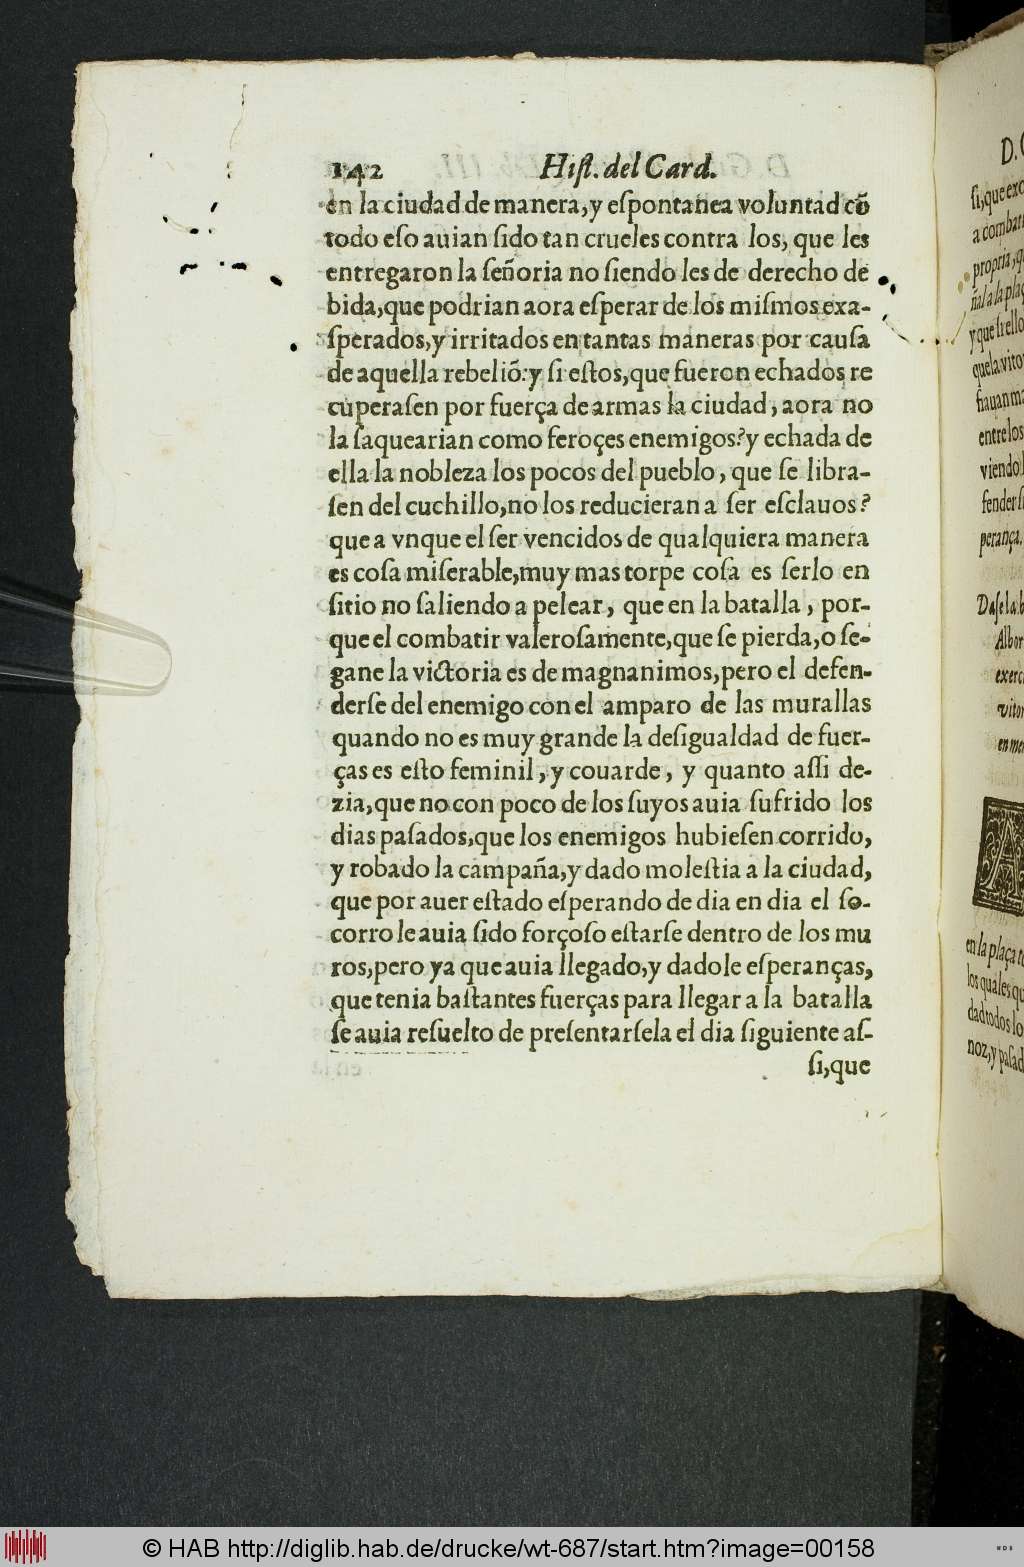 142 Hiſt. del Card.
en la ciudad de manera, y eſpontanea voluntad cõ
todo eſo auian ſido tan crueles contra los, que les
entregaron la ſeñoria no ſiendo les de derecho de
bida,que podrian aora eſperar de los miſmos exa-
ſperados,y irritados en tantas maneras por cauſa
de aquella rebeliõ: y ſi eſtos,que fueron echados re
cuperaſen por fuerça de armas la ciudad, aora no
la ſaquearian como feroçes enemigos? y echada de
ella la nobleza los pocos del pueblo, que ſe libra-
ſen del cuchillo,no los reducieran a ſer eſclauos?
que a vnque el ſer vencidos de qualquiera manera
es coſa miſerable,muy mas torpe coſa es ſerlo en
ſitio no ſaliendo a pelear, que en la batalla, por-
que el combatir valeroſamente,que ſe pierda,o ſe-
gane la victoria es de magnanimos,pero el defen-
derſe del enemigo con el amparo de las murallas
quando no es muy grande la deſigualdad de fuer-
ças es eſto feminil, y couarde, y quanto aſſi de-
zia,que no con poco de los ſuyos auia ſufrido los
dias paſados,que los enemigos hubieſen corrido,
y robado la campaña,y dado moleſtia a la ciudad,
que por auer eſtado eſperando de dia en dia el ſo-
corro le auia ſido forçoſo eſtarſe dentro de los mu
ros,pero ya que auia llegado,y dadole eſperanças,
que tenia baſtantes fuerças para llegar a la batalla
ſe auia reſuelto de preſentarſela el dia ſiguiente aſ-
ſi,que
ſi,que
a combat
propria
y que
que la vito
entre los
viendo
fender
perança.
Daſe la b
Albor
exerc
vitor
A
en la plaça
los quales
dad todos lo
noz,y paſad
© HAB http://diglib.hab.de/drucke/wt-687/start.htm?image=00158